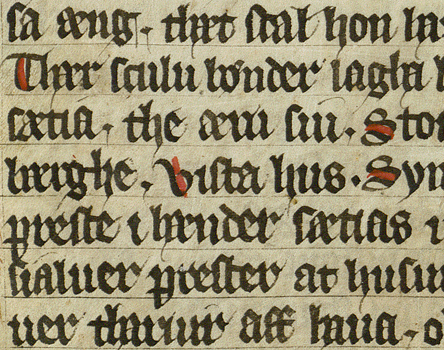 sa æng. thet skal hon ha
Thær sculu bønder lagha
sætia. the æru siu. Sto
brighe. Vista hus. Syn
preste i hænder sætias i
sialuer prester at husu
uer tharuur aff haua. o